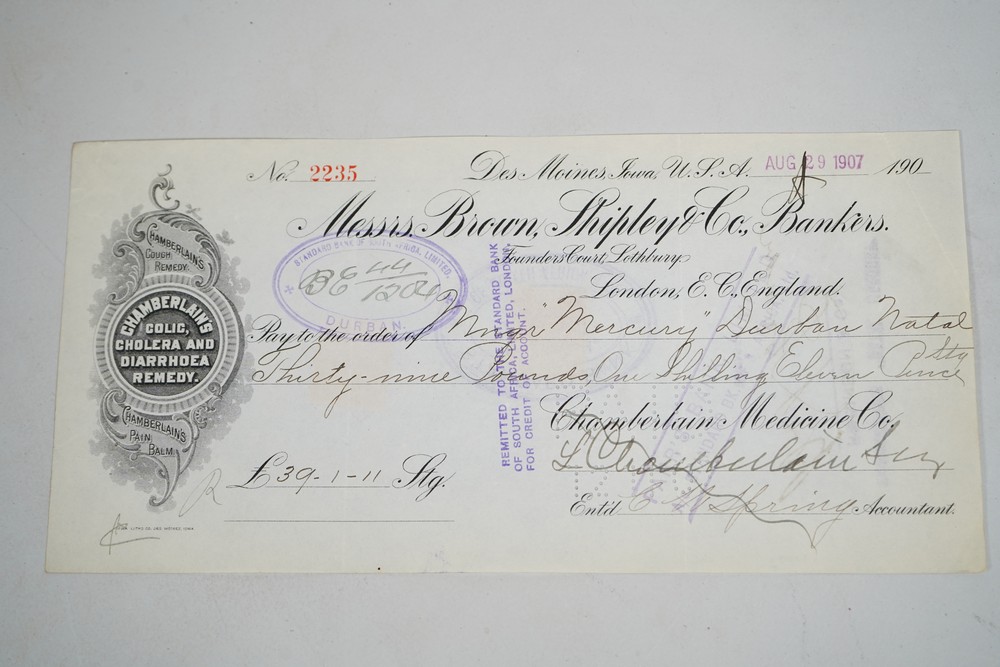 No. 2235
Des Moines, Iowa, U.S.A. AUG 29 1907 190
Messrs. Brown, Shipley & Co., Bankers.
Founders Court, Lothbury
London, E.C., England.
STANDARD BANK OF SOUTH AFRICA, LIMITED.
B6 44/1204
DURBAN
Pay to the order of "Mercury" Durban Natal
Thirty-nine Pounds, One Shilling Eleven Pence Stg
REMITTED TO THE STANDARD BANK
OF SOUTH AFRICA, LIMITED, LONDON,
FOR CREDIT OF ACCOUNT.
Chamberlain Medicine Co.
Chamberlain
£39-1-11 Stg.
Ent'd. Spring Accountant.
CHAMBERLAIN'S
COUGH
REMEDY.
CHAMBERLAIN'S
COLIC,
CHOLERA AND
DIARRHOEA
REMEDY.
CHAMBERLAIN'S
PAIN
BALM.